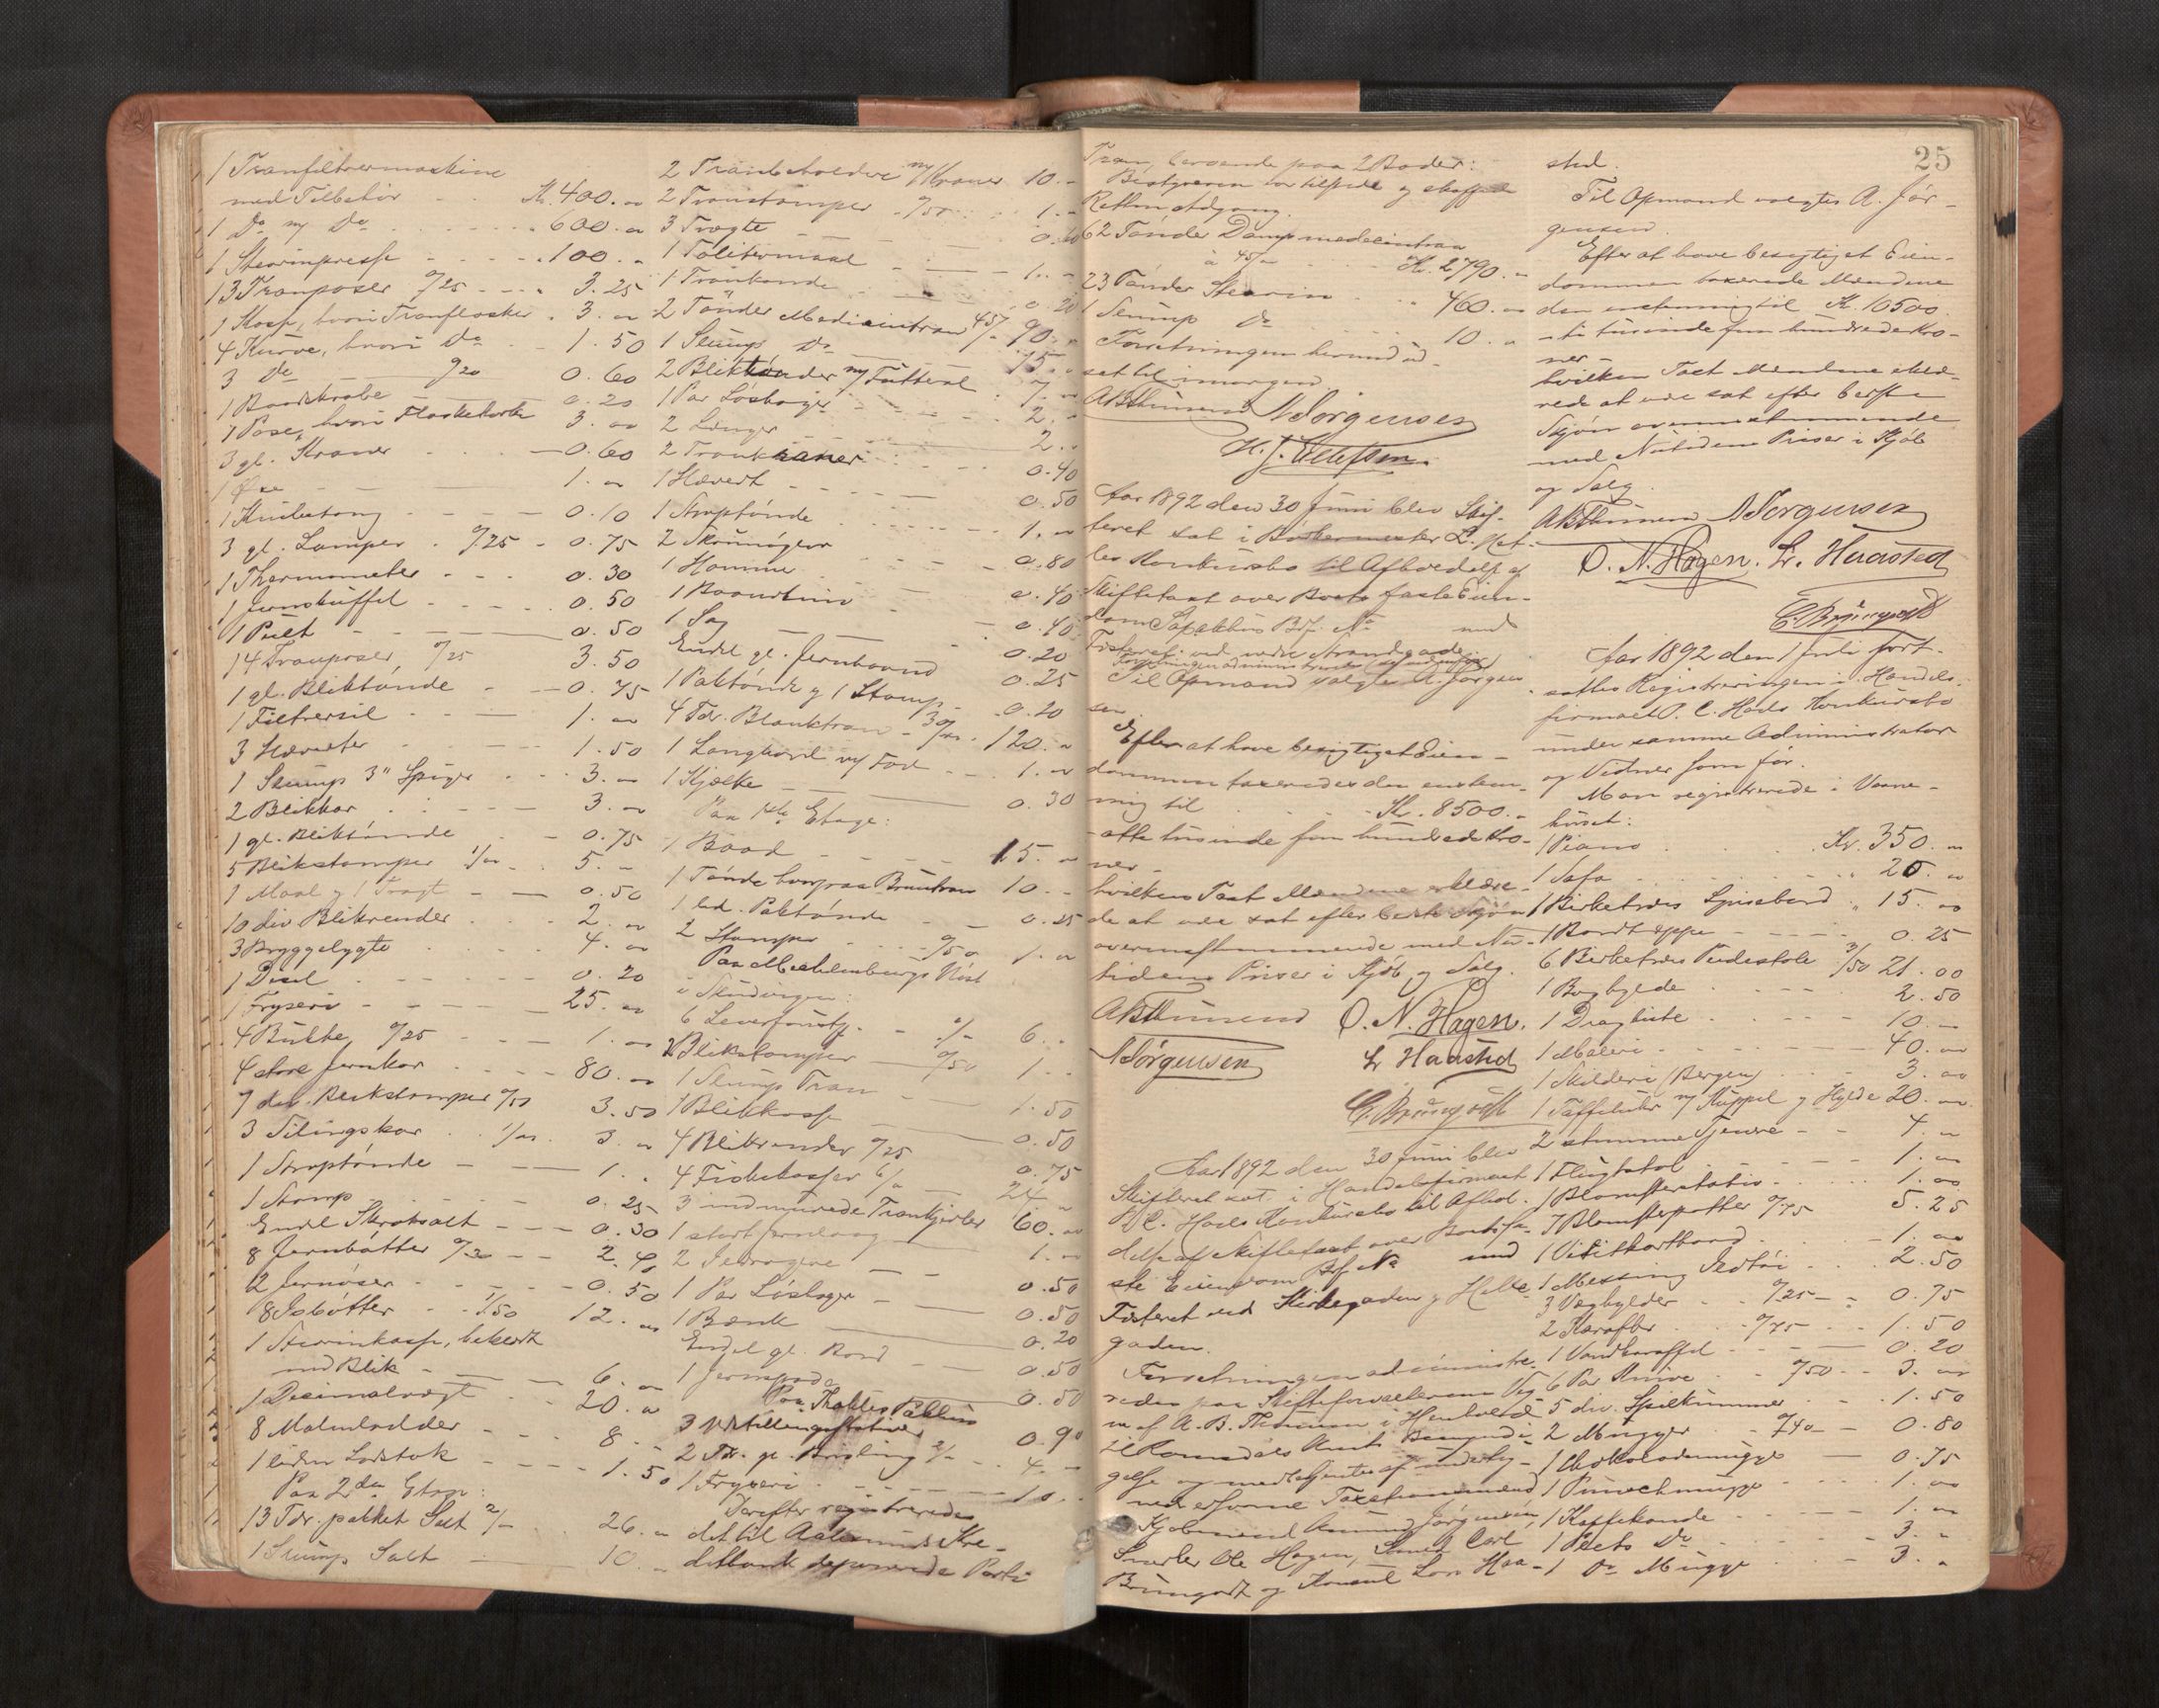 1 Tranfiltrermaskine
med Tilbehör - - Kr. 400. "
1 Do m/ Do - - - - 600. "
1 Stearinpresse - - - - 100. "
13 Tranposer 0/25 - - - 3.25
1 Kasse, hvori Tranflasker - 3. "
4 Kurve, hvori Do - - 1.50
3 Do 0/20 0.60
1 Baandskrabe 0.20
1 Pose, hvori Flaskekorke 3. "
3 gl. Kraner - - - 0.60
1 Øxe - - 1. "
1 Knibetang - - - 0.10
3 gl. Lamper - 0/25 - 0.75
1 Thermometer - - - 0.30
1 Jernskuffel - - - - 0.50
1 Pult - - - 0.50
14 Tranposer, 0/25 3.50
1 gl. Bliktönde - - 0.75
1 Filtrersil - - - 1. "
3 Hæverter - - - 1.50
1 Slump 3" Spiger - - - 3. "
2 Blikkar - - - - 3. "
1 gl. Bliktönde - - 0.75
5 Blikstamper 1/" - - 5. "
1 Maal og 1 Tragt - - 0.50
10 div Blikrender - - - 2. "
3 Bryggelygte - - - - 4. "
1 Dexel - - - - - 0.20
1 Fryseri - - - - 25. "
4 Bütte, 0/25 - - - 1. "
4 store Jernkar - - - - 80. "
7 div. Blikstamper 0/50 3.50
3 Silingskar - - 1/" - 3. "
1 Sirupstönde - - - 1. "
1 Stamp - - - - 0.25
Endel Skrabsalt - - - 0.30
8 Jernbötter 0/30 - - 2.40
2 Jernöser - - - - 0.50
8 Isbötter - - 1/50 12. "
1 Stearinkasse, beklædt
med Blik - - - 6. "
1 Decimalvægt - - 20. "
8 Malmlodder - - - 8. "
1 liden Lodstok - - - - 1.50
Paa 2den Etage:
13 Tdr. pakket Salt 2/" - - 26. "
1 Slump Salt - - 10. "
2 Tranbeholdere m/ Kraner 10. "
2 Transtamper 0/50 - - - 1. "
3 Tragte - - - 0.60
1 Tolitermaal - - - 1. "
1 Trankande - - - 0.20
2 Tönder Medicintran 45/" 90. "
1 Slump Do - - - 15. "
2 Bliktönder m/ Futteral - 7. "
1 Par Löshager - - - 1. "
2 Længer - - - 2. "
2 Trankraner - - - 2. "
1 Hævert - - - 0.40
1 Sirupstönde - - - 0.50
2 Skrunögler - - - 1. "
1 Hammer - - - 0.80
1 Baandkniv - - - 0.40
1 Sag - - - 0.40
Endel gl. Jernbaand 0.20
1 Paktönde og 1 Stamp - 0.25
4 Tdr. Blanktran - 30/" - 120. "
1 Langbord m/ Fod - - 1. "
1 Kjelke - - - 0.30
Paa 1ste Etage:
1 Baad - - - - 15. "
1 Tönde hvorpaa Bruntran 10. "
1 led. Paktönde - - 0.25
2 Stamper - - - 0/50 1. "
Paa Mecklenburgs Nöst
i Skudvigen:
6 Leverfustg. - - 1/" 6. "
2 Blikstamper - - 0/50 1. "
1 Slump Tran - - 1.50
1 Blikkasse - - 0.50
4 Blikrender 0/25
4 Fiskekasser 6/" - 24. "
3 indmurede Trankjedler 60. "
1 stort Jernlaag - 1. "
2 Ildragere - - 0.50
1 Par Löshager - - 0.50
1 Bænk - - 0.20
Endel gl. Bord - - 0.50
1 Jernspade - - 0.50
Paa Thaules Pakhus
3 Udstillingsstativer - 0.90
2 Tdr. gl. Brisling 2/" - - 4. "
1 Fryseri - - - 10. "
Derefter registreredes
det til Aalesunds Kre-
ditbank deponerede Parti
25
Tran, beroende paa 2 Boder:
Bestyreren var tilstede og skaffede
Retten Adgang.
62 Tönder Dampmedicintran
a 45/" - - - Kr. 2790. "
23 Tönder Stearin - - 460. "
1 Slump Do - - 10. "
Forretningen herunder ud-
sat til imorgen
ABThimens NJörgensen
H. J. Ellefsen.
Aar 1892 den 30 Juni blev Skif-
teret sat i Bödkermester L. Net-
les Konkursbo til Afholdelse af
Skiftetaxt over Boets faste Eien-
dom Søpakhus Br. No med
Fisteret ved nedre Strandgade
Til Opmand valgtes A. Jörgen-
sen.
Efter at have besigtiget Eien-
dommen taxeredes den enstem-
mig til - - - Kr. 8500. "
- otte tusinde fem hundrede Kro-
ner -
hvilken Taxt Mændene erklære-
de at være sat efter bedste Skjön
overensstemmende med Nu-
tidens Priser i Kjöb og Salg.
ABThimens O. N. Hagen.
NJörgensen L. Haasted
C. Brungodt
Aar 1892 den 30 Juni blev
Skifteret sat i Handelsfirmaet
P. C. Hoels Konkursbo til Afhol-
delse af Skiftetaxt over Boets fa-
ste Eiendom Br. No med
Fisteret ved Kirkegaden og Helle-
gaden.
Forretningen administre-
redes paa Skifteforvalterens Veg-
ne af A. B. Thimens i Henhold
til Romsdals Amts Bemyndi-
gelse og medbetjentes af underteg-
nede erfarne Taxationsmænd
Kjöbmænd Amund Jörgensen,
Snedker Ole Hagen, Smed Carl
Brungodt og Konsul Lars Haa-
sted.
Til Opmand valgtes A. Jör-
gensen.
Efter at have besigtiget Eien-
dommen taxerede Mændene
den enstemmig til Kr. 10500.
- ti tusinde fem hundrede Kro-
ner -
hvilken Taxt Mændene erklæ-
rede at være sat efter bedste
Skjön overensstemmende
med Nutidens Priser i Kjöb
og Salg.
ABThimens NJörgensen
O. N. Hagen. L. Haasted
C. Brungodt
Aar 1892 den 1 Juli fort-
sattes Registreringen i Handels-
firmaet P. C. Hoels Konkursbo
under samme Administrator
og Vidner som för.
Man registrerede i Vaane-
huset:
1 Piano - - - Kr. 350. "
1 Sofa - - - " 25. "
1 Birketræes Spisebord " 15. "
1 Bordteppe - - - 0.25
6 Birketræes Pindestole 3/50 21.00
1 Boghylde - - - 2.50
1 Dragliste - - - 10. "
1 Maleri - - - 40. "
1 Skilderi (Bergen) - - 3. "
1 Taffeluhr m/ Kuppel og Hylde 20. "
2 stumme Tjenere - - 4. "
1 Flugtstol - - - 1. "
1 Blomsterstativ - - - 1. "
7 Blomsterpotter 0/75 5.25
1 Visitkortbord - - 1. "
1 Messing Ildtöi - - 2.50
3 Væghylder - - 0/25 - 0.75
2 Karafler - - 0/75 - - 1.50
1 Vandkaraffel - - - 0.20
6 Par Knive - - 0/50 - - 3. "
5 div. Spilkummer - - 1.50
2 Mugger - - 0/40 - 0.80
1 Chokolademugge - 0.75
1 Punschmugge - - 1. "
1 Kaffekande - - 1. "
1 Plets Do - - 3. "
1 Do Mugge - - 3. "